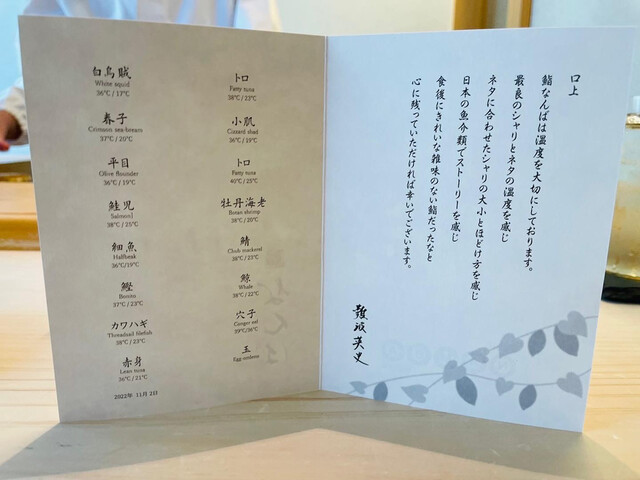 白烏賊
White squid
36℃ / 17℃
春子
Crimson sea-bream
37℃ / 20℃
平目
Olive flounder
36℃ / 19℃
鮭児
Salmon]
38℃ / 25℃
細魚
Halfbeak
36℃/19℃
鰹
Bonito
37℃ / 23℃
カワハギ
Threadsail filefish
38℃ / 23℃
赤身
Lean tuna
36℃ / 21℃
2022年 11月 2日
トロ
Fatty tuna
38℃ / 23℃
小肌
Gizzard shad
36℃ / 19℃
トロ
Fatty tuna
40℃ / 25℃
牡丹海老
Botan shrimp
38℃ / 20℃
鯖
Chub mackerel
38℃ / 23℃
鯨
Whale
38℃ / 22℃
穴子
Conger eel
39℃/36℃
玉
Egg omlette
口上
鮨なんばは温度を大切にしております。
最良のシャリとネタの温度を感じ
ネタに合わせたシャリの大小とほどけ方を感じ
日本の魚介類でストーリーを感じ
食後にきれいな雑味のない鮨だったなと
心に残っていただければ幸いでございます。
難波英史